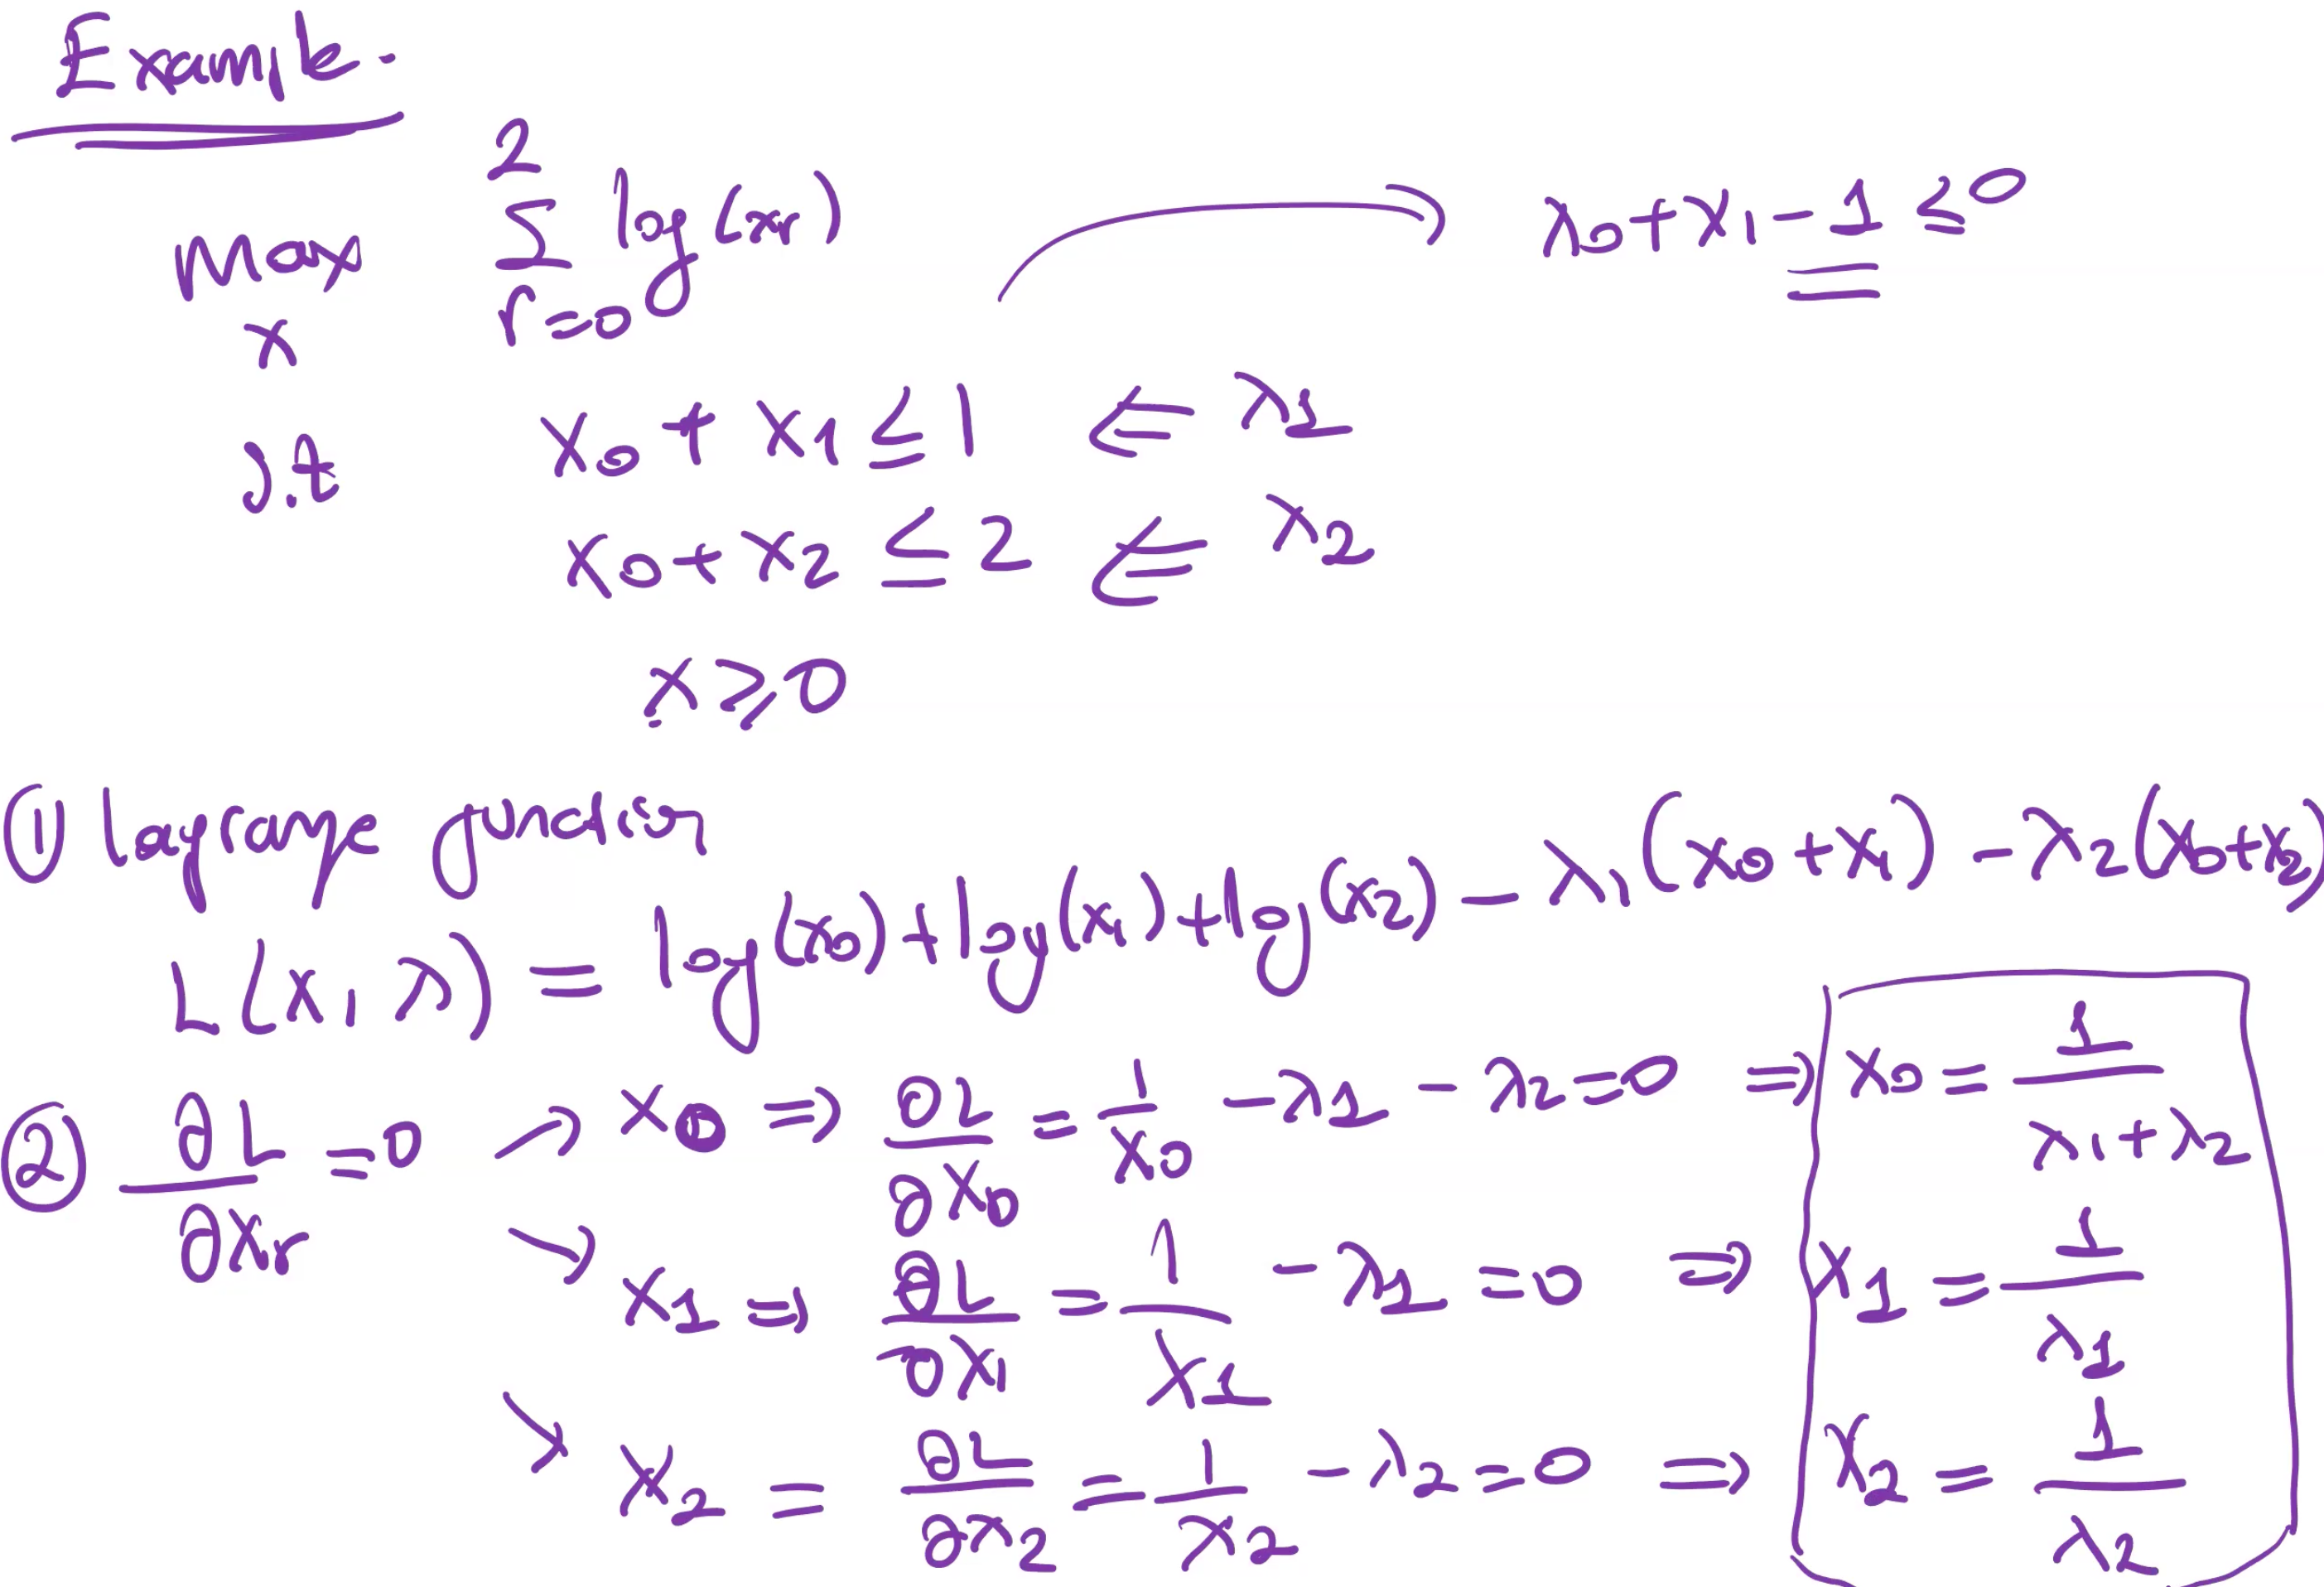 Example.
Max Σ_{r=0}^{2} log(x_r) → x₀+x₁-1 ≤ 0
x
s.t x₀ + x₁ ≤ 1 ⇐ λ₁
x₀ + x₂ ≤ 2 ⇐ λ₂
x ≥ 0
① Lagrange
L(x, λ) = log(x₀) + log(x₁) + log(x₂) - λ₁(x₀+x₁) - λ₂(x₀+x₂)
② ∂L/∂x_r = 0 → x₀ ⇒ ∂L/∂x₀ = 1/x₀ - λ₁ - λ₂ = 0 ⇒ x₀ = 1/(λ₁+λ₂)
→ x₁ ⇒ ∂L/∂x₁ = 1/x₁ - λ₁ = 0 ⇒ x₁ = 1/λ₁
→ x₂ = ∂L/∂x₂ = 1/x₂ - λ₂ = 0 ⇒ x₂ = 1/λ₂